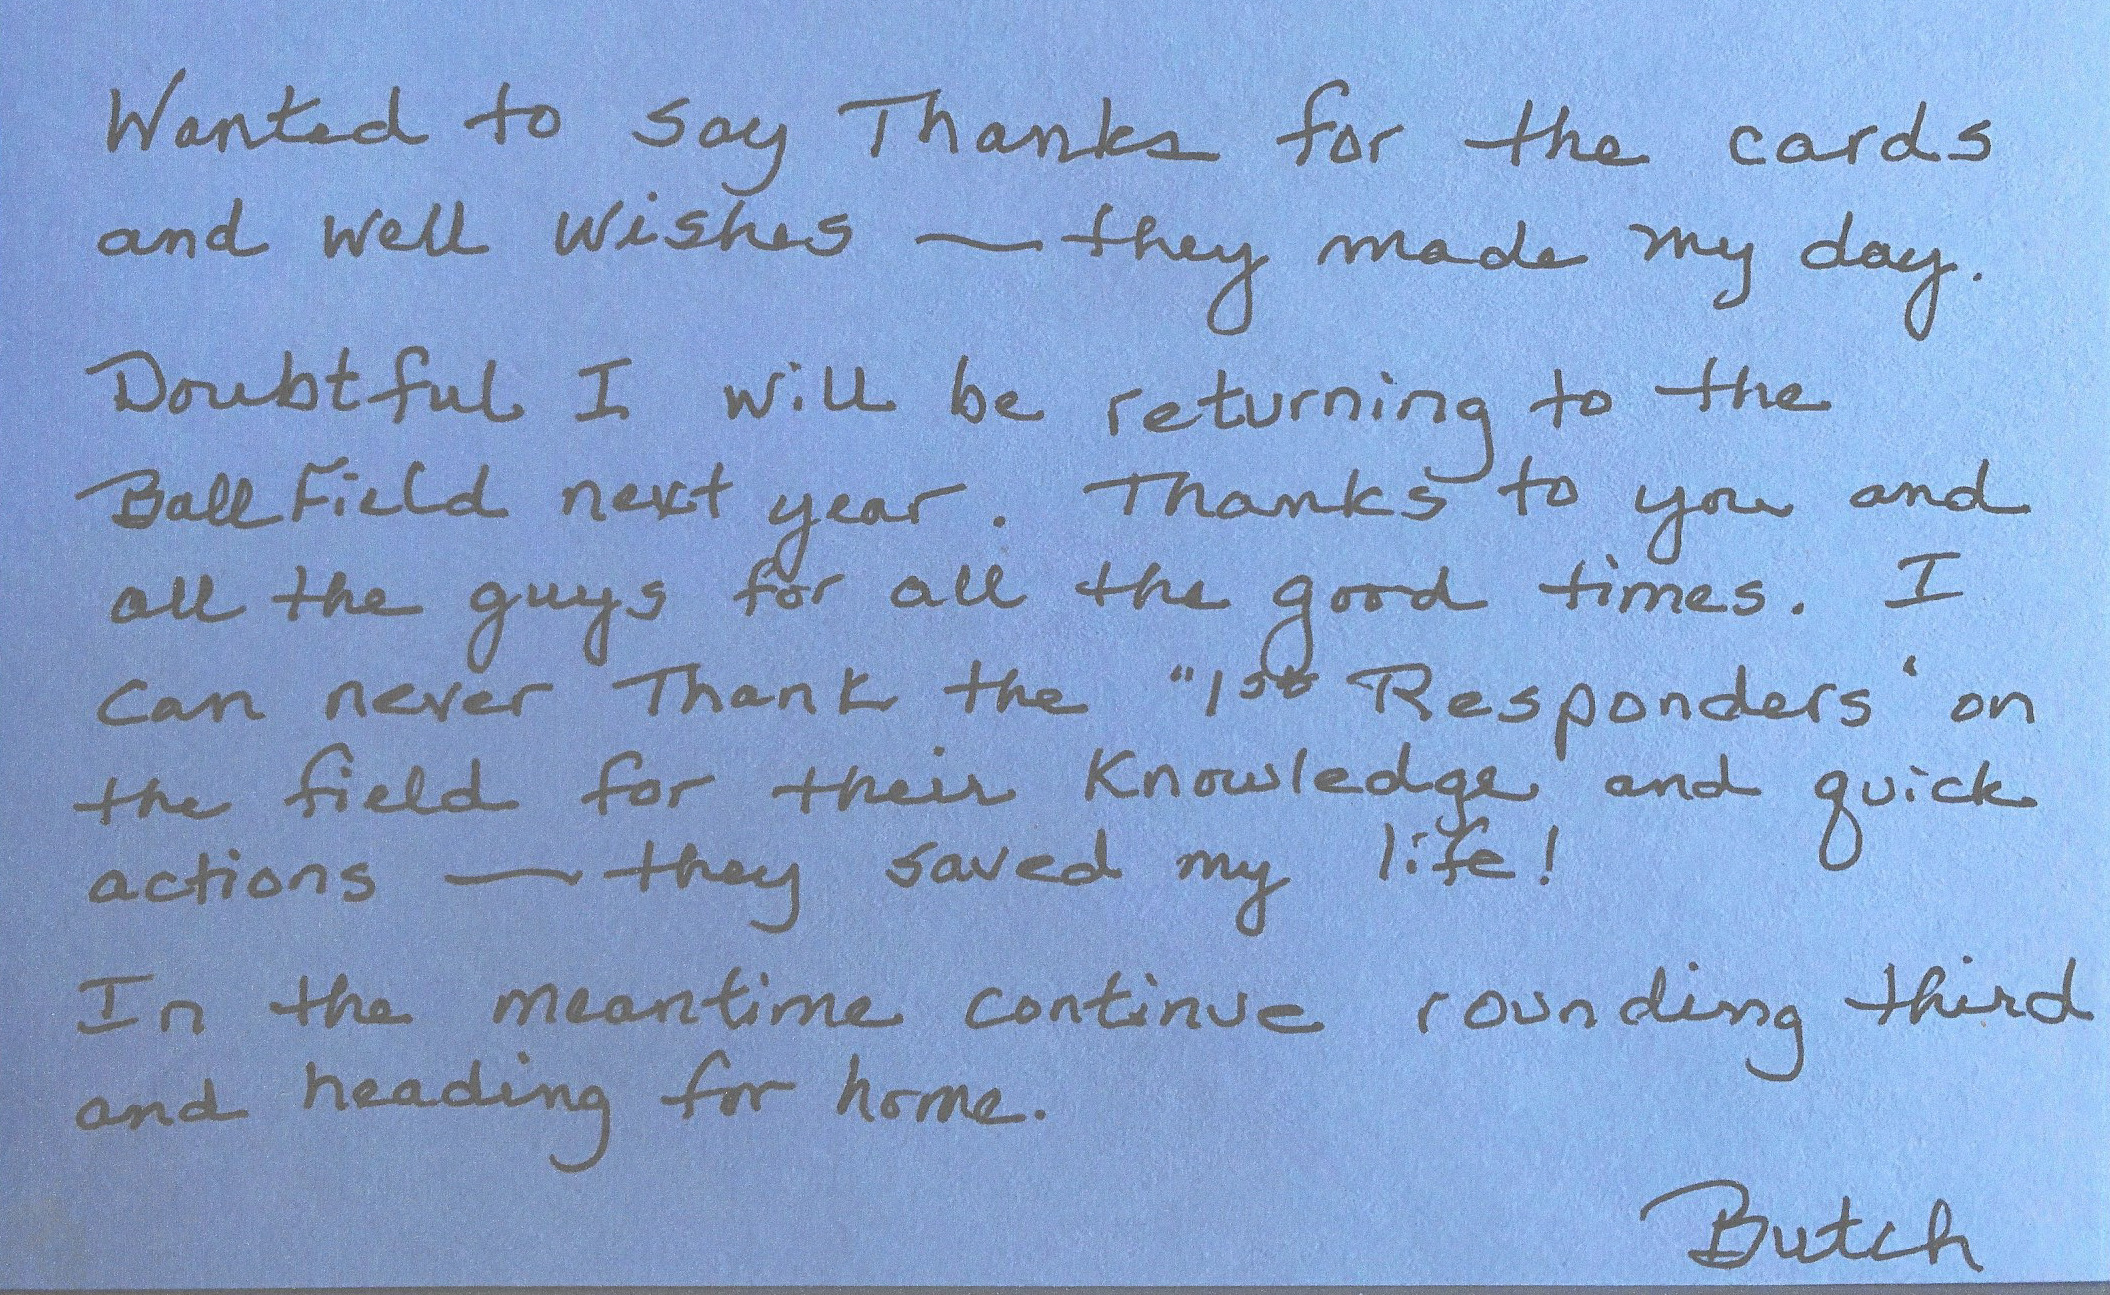 Wanted to say Thanks for the cards
and well wishes — they made my day.
Doubtful I will be returning to the
Ball Field next year. Thanks to you and
all the guys for all the good times. I
can never Thank the "1st Responders' on
the field for their Knowledge and quick
actions — they saved my life!
In the meantime continue rounding third
and heading for home.
Butch